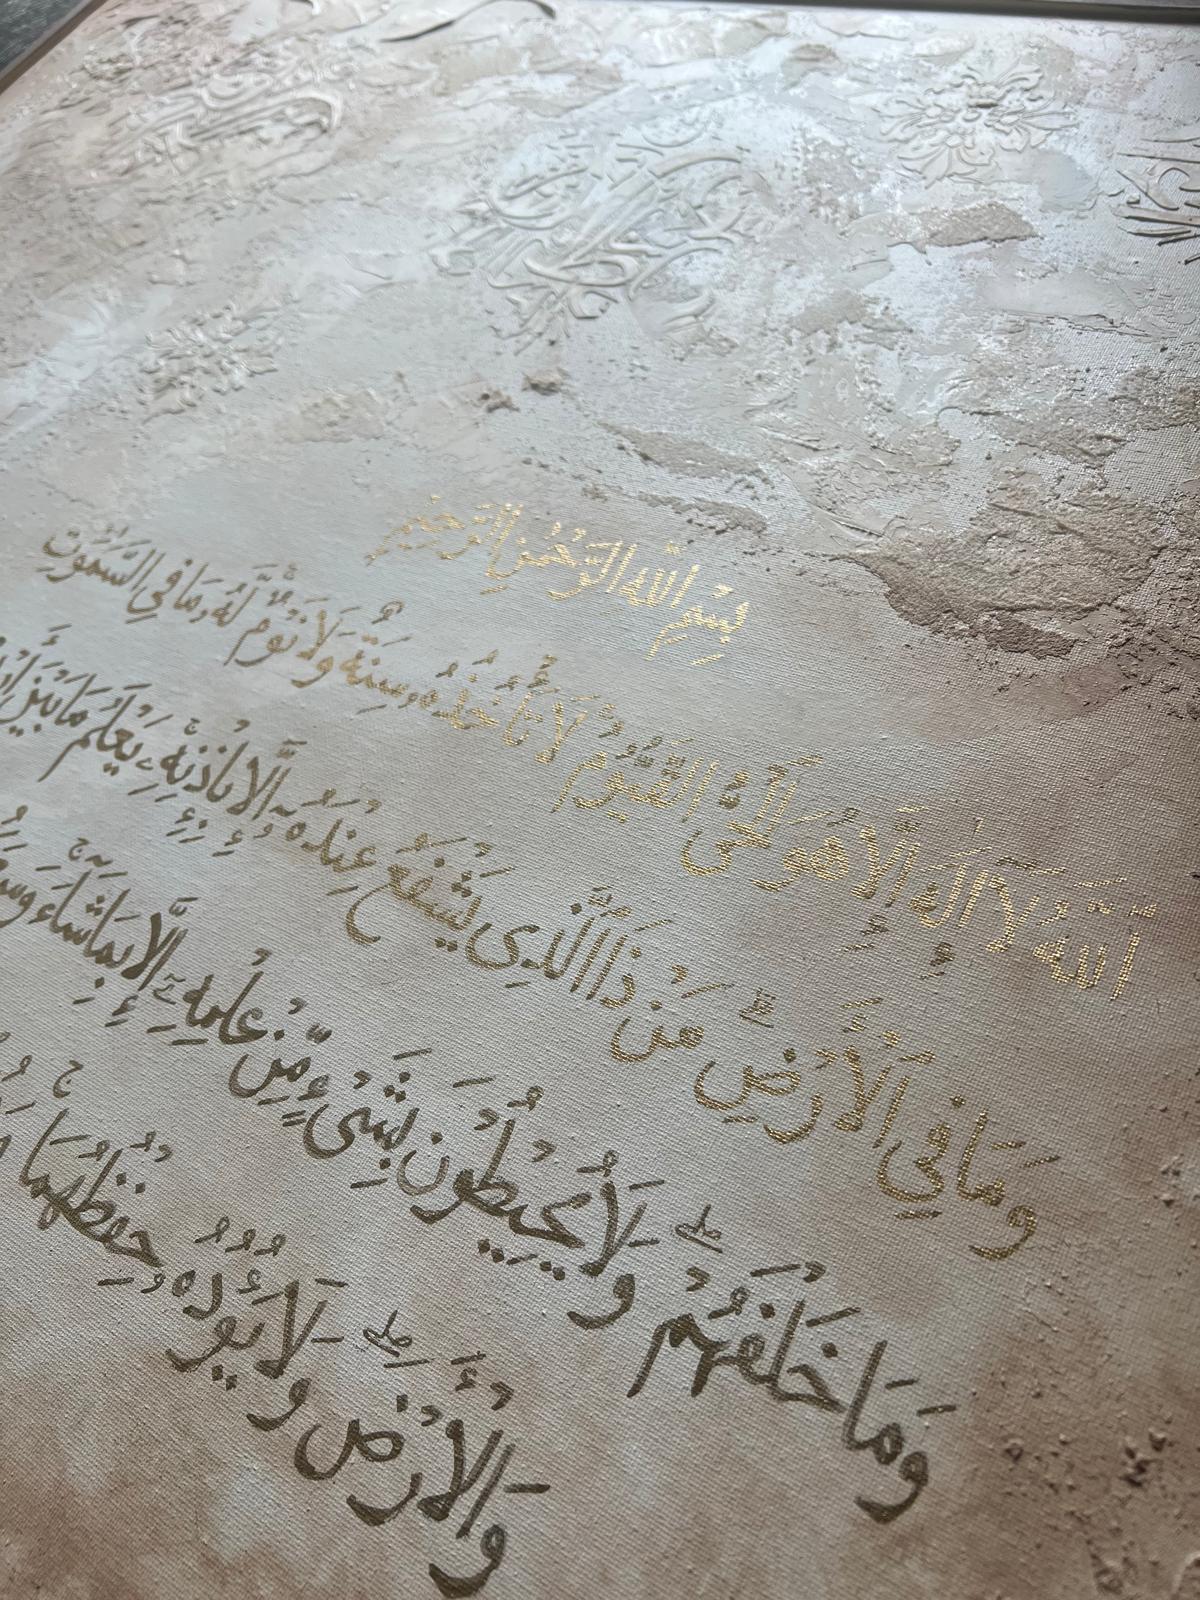 بِسْمِ اللَّهِ الرَّحْمٰنِ الرَّحِيمِ
اَللّٰهُ لَآ اِلٰهَ اِلَّا هُوَ اَلْحَيُّ الْقَيُّومُ لَا تَأْخُذُهُ سِنَةٌ وَلَا نَوْمٌ لَهُ مَا فِي السَّمٰوٰتِ
وَمَا فِي الْأَرْضِ مَنْ ذَا الَّذِي يَشْفَعُ عِنْدَهُ إِلَّا بِإِذْنِهِ يَعْلَمُ مَا بَيْنَ
وَمَا خَلْفَهُمْ وَلَا يُحِيطُونَ بِشَيْءٍ مِّنْ عِلْمِهِ إِلَّا بِمَا شَآءَ
وَالْأَرْضَ وَلَا يَؤُدُهُ حِفْظُهُمَا